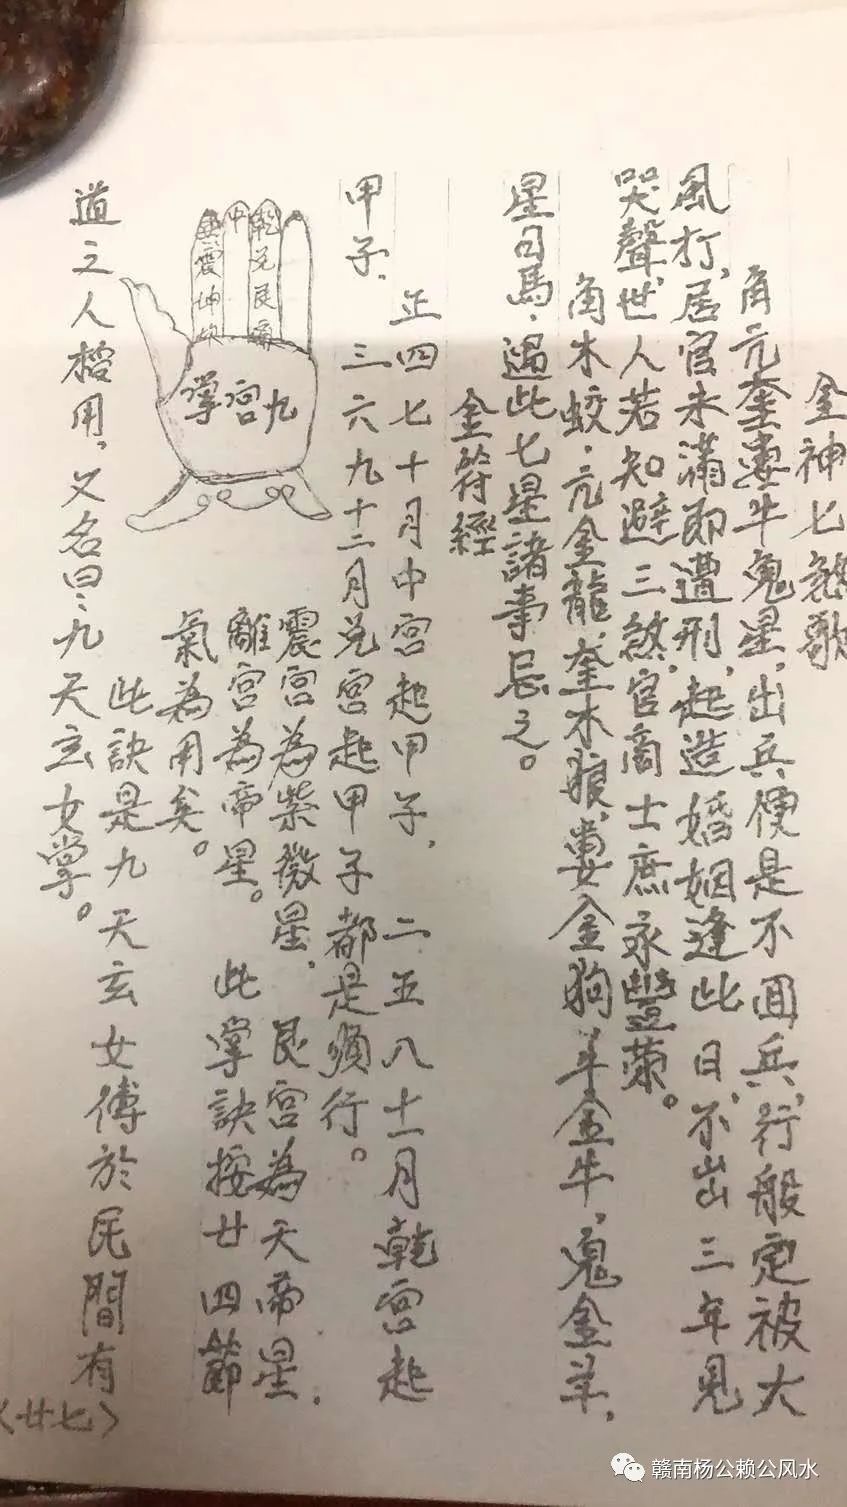 金神七煞歌
角亢奎婁牛鬼星，出兵便是不回兵，行般定被大
風打，居官未滿即遭刑，起造婚姻逢此日，不出三年見
哭聲，世人若知避三煞，官商士庶永豐榮。
角木蛟，亢金龍，奎木狼，婁金狗，牛金牛，鬼金羊，
星日馬，遇此七星諸事忌之。
金符經
正四七十月中宮起甲子，二五八十一月乾宮起
甲子，三六九十二月兌宮起甲子都是順行。
震宮為紫微星，艮宮為天帝星，
離宮為帝星。此掌訣按廿四節
氣為用矣。
中
乾兌艮離
巽震坤坎
九宮掌
此訣是九天玄女傳於民間有
道之人授用，又名曰、九天玄女掌。
〈廿七〉
赣南杨公赖公风水